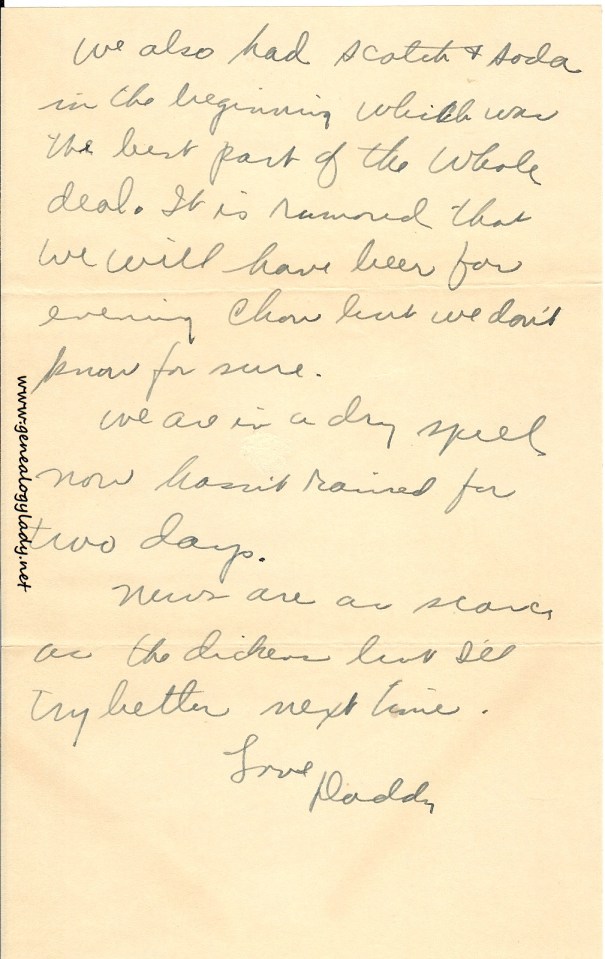 We also had scotch & soda
in the beginning which was
the best part of the whole
deal. It is rumored that
we will have beer for
evening chow but we don't
know for sure.
We are in a dry spell
now hasn't rained for
two days.
News are as scarce
as the dickens but I'll
try better next time.
Love
Daddy
www.genealogylady.net